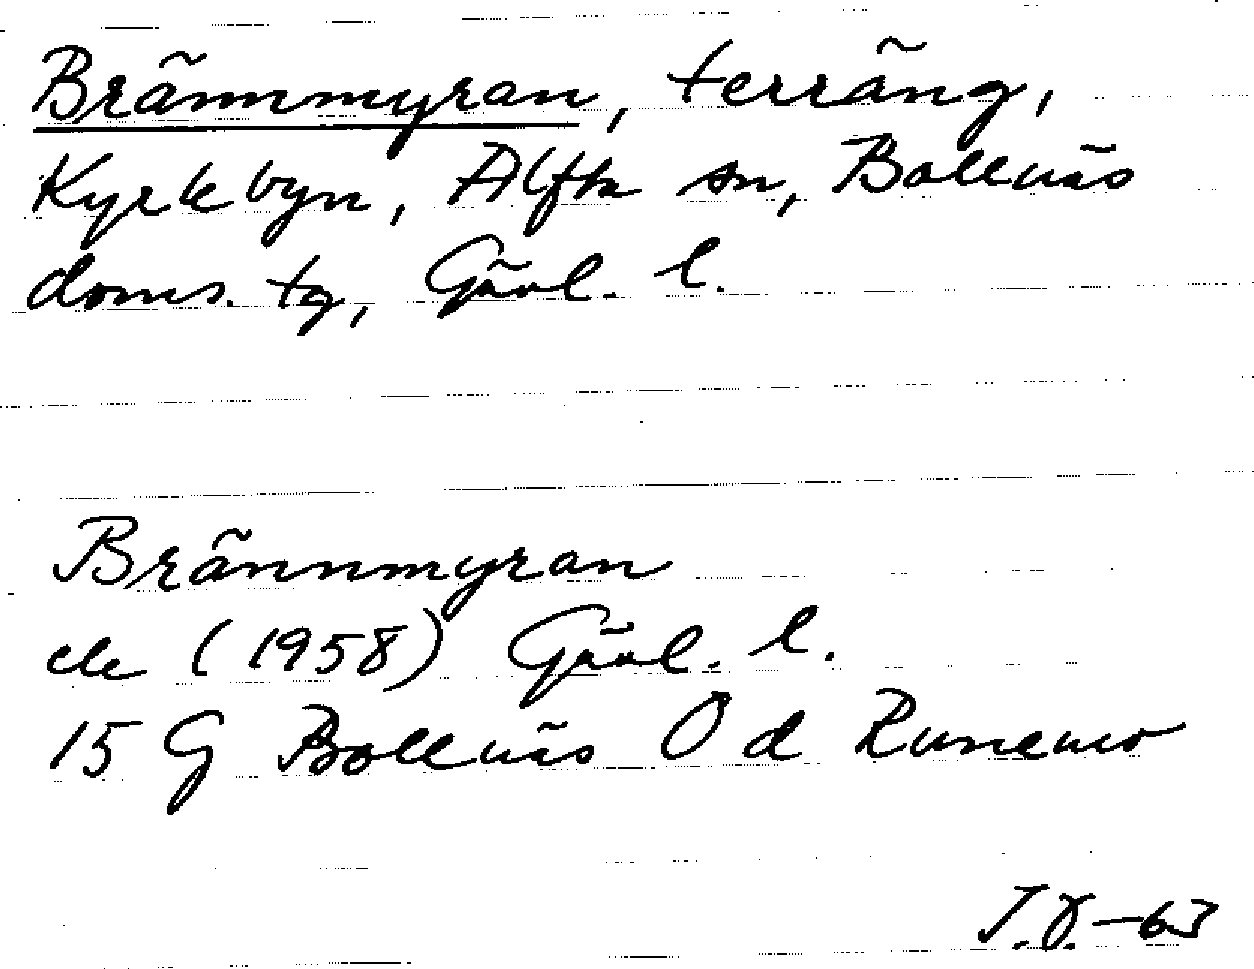 Brännmyran, terräng,
Kyrkbyn, Alfta sn, Bollnäs
doms. tg, Gävl. l.
Brännmyran
ek (1958) Gävl. l.
15 G Bollnäs O d Runemo
J.Ö.-63